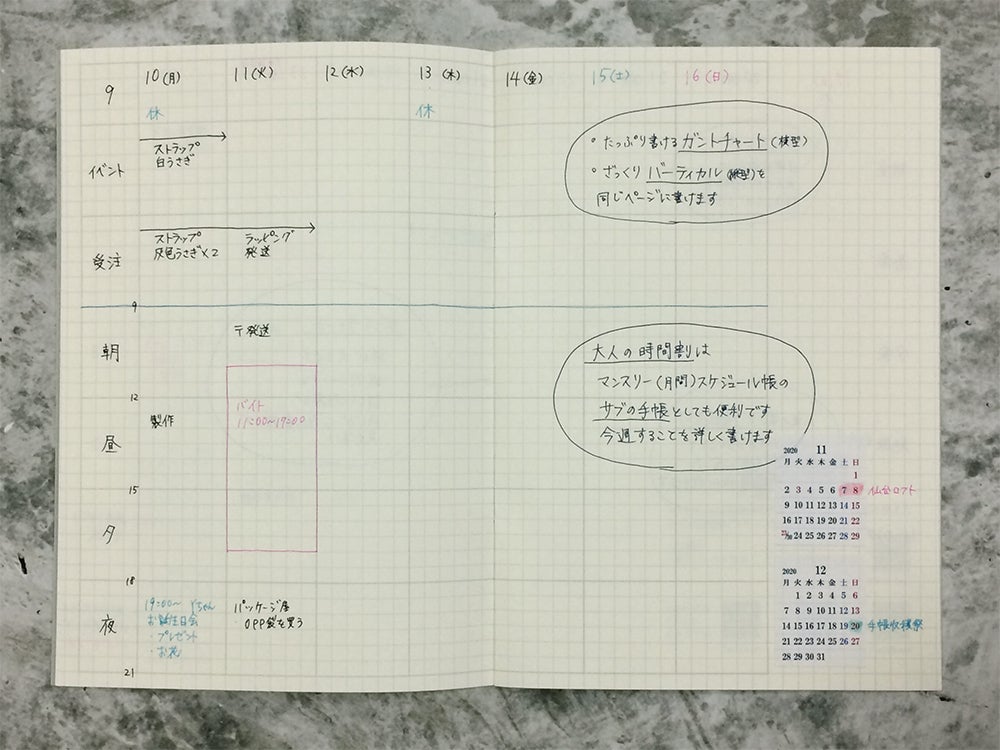 9
10(月) 11(火) 12(水) 13(木) 14(金) 15(土) 16(日)
休 休
イベント
ストラップ
白うさぎ
受注
ストラップ
灰色うさぎ×2
ラッピング
発送
・たっぷり書けるガントチャート(横型)
・ざっくりバーティカル(縦型)を
同じページに書けます
9
朝
〒発送
12
製作
バイト
11:00〜17:00
昼
15
夕
18
夜
19:00〜 Yちゃん
お誕生日会
・プレゼント
・お花
パッケージ屋
・OPP袋を買う
21
大人の時間割は
マンスリー(月間)スケジュール帳の
サブの手帳としても便利です
今週することを詳しく書けます
2020 11
月 火 水 木 金 土 日
1
2 3 4 5 6 7 8 仙台ロフト
9 10 11 12 13 14 15
16 17 18 19 20 21 22
23/30 24 25 26 27 28 29
2020 12
月 火 水 木 金 土 日
1 2 3 4 5 6
7 8 9 10 11 12 13
14 15 16 17 18 19 20 手帳収穫祭
21 22 23 24 25 26 27
28 29 30 31